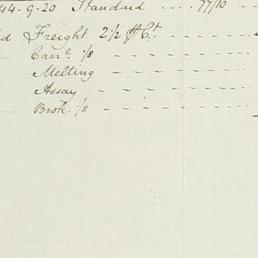 44 . 9 . 20 Standard . . . . 77/10
d Freight 2½ ₱ Ct.
Can.e ⅛
Melting
Assay
Brok. ⅛